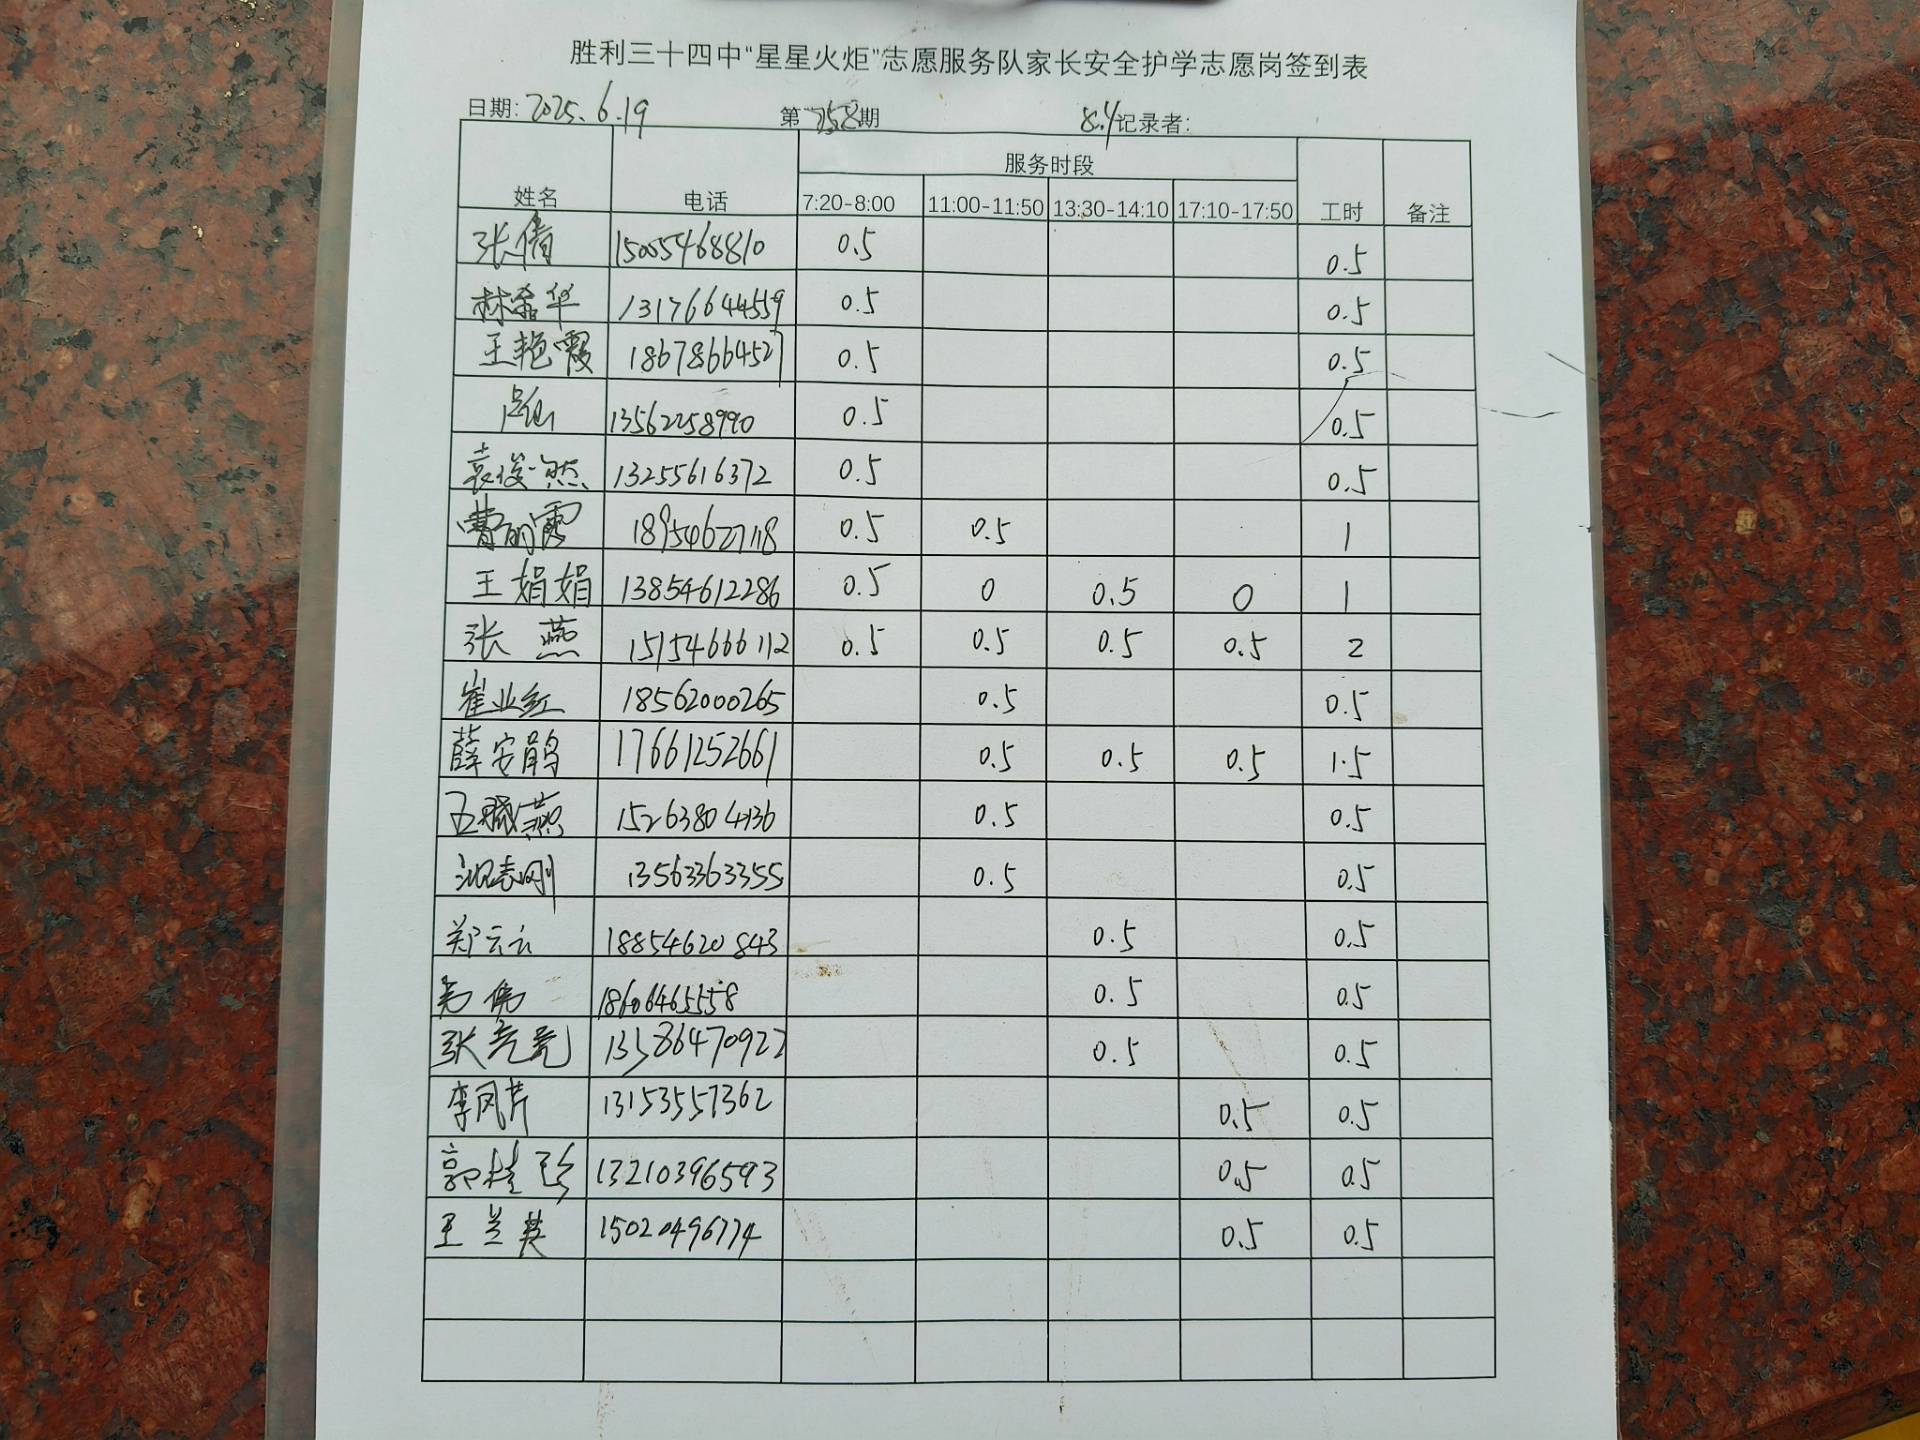 胜利三十四中“星星火炬”志愿服务队家长安全护学志愿岗签到表
日期: 2025.6.19 第758期 8.4 记录者:
服务时段
姓名 电话 7:20-8:00 11:00-11:50 13:30-14:10 17:10-17:50 工时 备注
张倩 15005468810 0.5 0.5
林希华 13176644559 0.5 0.5
王艳霞 18678664527 0.5 0.5
13562258990 0.5 0.5
袁俊然 13255616372 0.5 0.5
曹丽霞 18954627118 0.5 0.5 1
王娟娟 13854612286 0.5 0 0.5 0 1
张燕 15154666112 0.5 0.5 0.5 0.5 2
崔业红 18562000265 0.5 0.5
薛安鹃 17661252661 0.5 0.5 0.5 1.5
燕 15263804136 0.5 0.5
志刚 13563363355 0.5 0.5
郑云云 18854620843 0.5 0.5
伟 18606465558 0.5 0.5
张亮亮 13586470922 0.5 0.5
李凤芹 13153557362 0.5 0.5
郭桂珍 13210396593 0.5 0.5
王兰英 15020496774 0.5 0.5